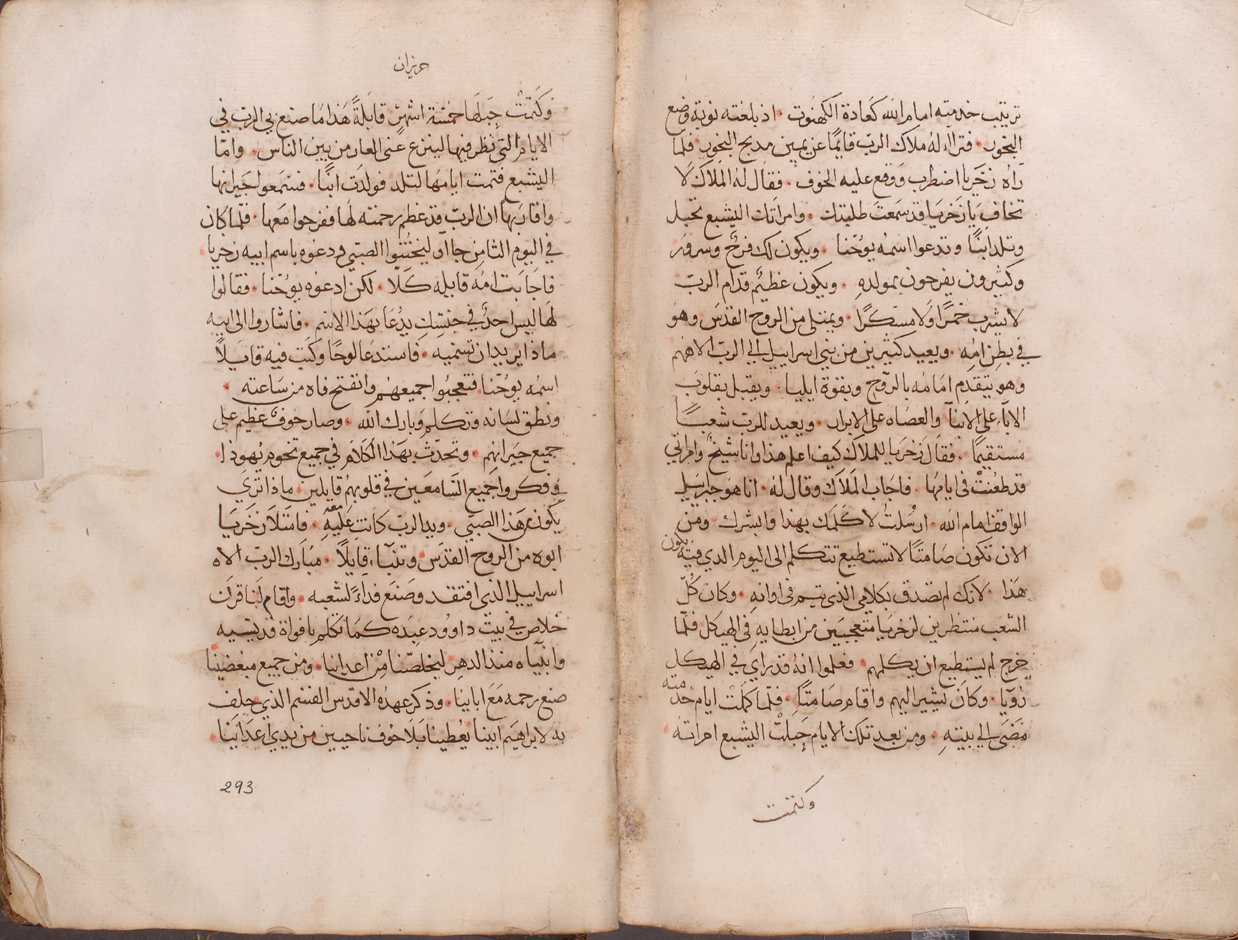 ترتيب خدمته امام الله كعادة الكهنوت • اذ بلغته نوبة وضع
البخور • فتراآ له ملاك الرب قايمًا عن يمين مدبح البخور • فلما
راه زخريا اضطرب ووقع عليه الخوف • فقال له الملاك لا
تخاف يا زخريا قد سمعت طلبتك • وامراتك اليشبع تحبل
وتلد ابنًا وتدعوا اسمه يوحنا • ويكون لك فرح وسرور
وكثيرون يفرحون بمولده • ويكون عظيم قدام الرب
لا يشرب خمرًا ولا مسكرًا • ويمتلى من الروح القدس وهو
في بطن امه • ويعيد كثيرين من بني اسراييل الى الرب الاههم
وهو يتقدم امامه بالروح وبقوة ايليا • ويقبل بقلوب
الاباء على الابنا والعصاه على الابرار • ويعيد للرب شعبًا
مستقيمًا • فقال زخريا للملاك كيف اعلم هذا وانا شيخ وامراتي
قد طعنت في ايامها • فاجاب الملاك وقال له • انا هو جبراييل
الواقف امام الله • ارسلت لاكلمك بهذا وابشرك • ومن
الان تكون صامتًا لا تستطيع تتكلم الى اليوم الدي فيه يكون
هذا • لانك لم تصدق بكلامي الذي يتم في اوانه • وكان كل
الشعب منتظرين لزخريا متعجبين من ابطايه في الهيكل فلما
خرج لم يستطيع ان يكلمهم • فعلموا انه قد راي في الهيكل
رؤيا • وكان يشير اليهم واقام صامتًا • فلما كملت ايام خدمته
مضى الى بيته • ومن بعد تلك الايام حبلت اليشبع امراته
وكتمت
حزيران
وكتمت حبلها خمسة اشهر قايلةً هذا ما صنع بي الرب في
الايام التي نظر فيها لينزع عني العار من بين الناس • واما
اليشبع فتمت ايامها لتلد فولدت ابنًا • فسمعوا جيرانها
واقاربها ان الرب قد عظم رحمته لها ففرحوا معها • فلما كان
في اليوم الثامن جااو ليختنوا الصبي ودعوه باسم ابيه زخريا
فاجابت امه قايله كلا • لكن ادعوه يوحنا • فقالوا
لها ليس احد في جنسك يدعا بهذا الاسم • فاشاروا الى ابيه
ماذا يريد ان تسميه • فاستدعا لوحًا وكتب فيه قايلاً
اسمه يوحنا فتعجبوا جميعهم وانفتح فاه من ساعته •
ونطق لسانه وتكلم وبارك الله • وصار خوف عظيم على
جميع جيرانهم • وتحدث بهذا الكلام في جميع تخوم يهودا •
وفكروا جميع السامعين في قلوبهم قايلين • ماذا ترى
يكون من هذا الصبي • ويد الرب كانت عليه معه • فامتلا زخريا
ابوه من الروح القدس وتنبا قايلاً • مبارك الرب الاه
اسراييل الذي افتقد وصنع فداءً لشعبه • واقام لنا قرن
خلاص في بيت داوود عبده كما تكلم بافواه قديسيه
وانبياه منذ الدهر ليخلصنا من اعداينا • ومن جميع مبغضينا
صنع رحمه مع اباينا • وذكر عهده الاقدس القسم الذي حلف
به لابراهيم ابينا يعطينا بلا خوف ناجيين من يدي اعداينا •
293